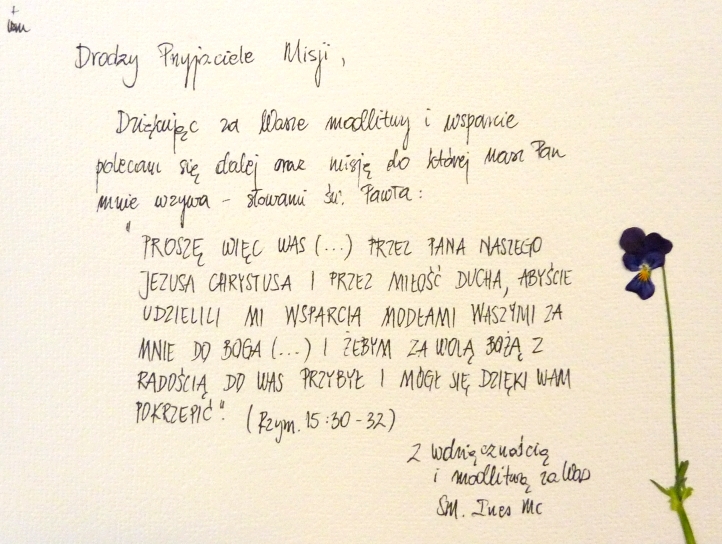 Drodzy Przyjaciele Misji,
Dziękując za Wasze modlitwy i wsparcie
polecam się dalej oraz misję do której nasz Pan
mnie wzywa - słowami św. Pawła:
"PROSZĘ WIĘC WAS (...) PRZEZ PANA NASZEGO
JEZUSA CHRYSTUSA I PRZEZ MIŁOŚĆ DUCHA, ABYŚCIE
UDZIELILI MI WSPARCIA MODŁAMI WASZYMI ZA
MNIE DO BOGA (...) I ŻEBYM ZA WOLĄ BOŻĄ Z
RADOŚCIĄ DO WAS PRZYBYŁ I MÓGŁ SIĘ DZIĘKI WAM
POKRZEPIĆ". (Rzym. 15:30-32)
Z wdzięcznością
i modlitwą za Was
SM. Ines MC